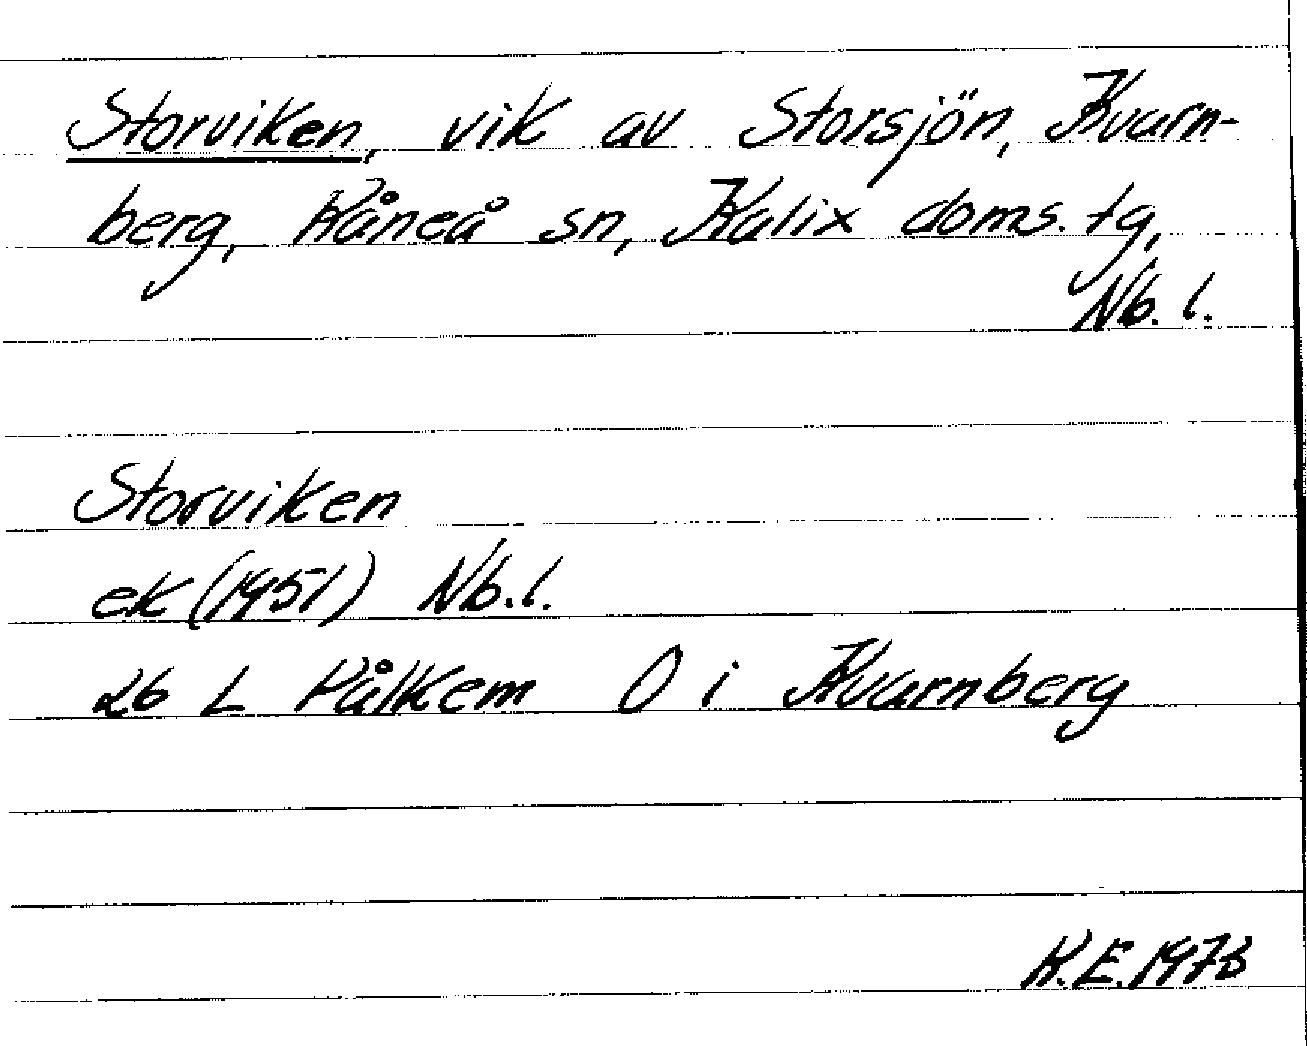 Storviken, vik av Storsjön, Kvarn-
berg, Råneå sn, Kalix doms. tg,
Nb. l.
Storviken
ek (1951) Nb. l.
26 L Pålkem O i Kvarnberg
K.E. 1973